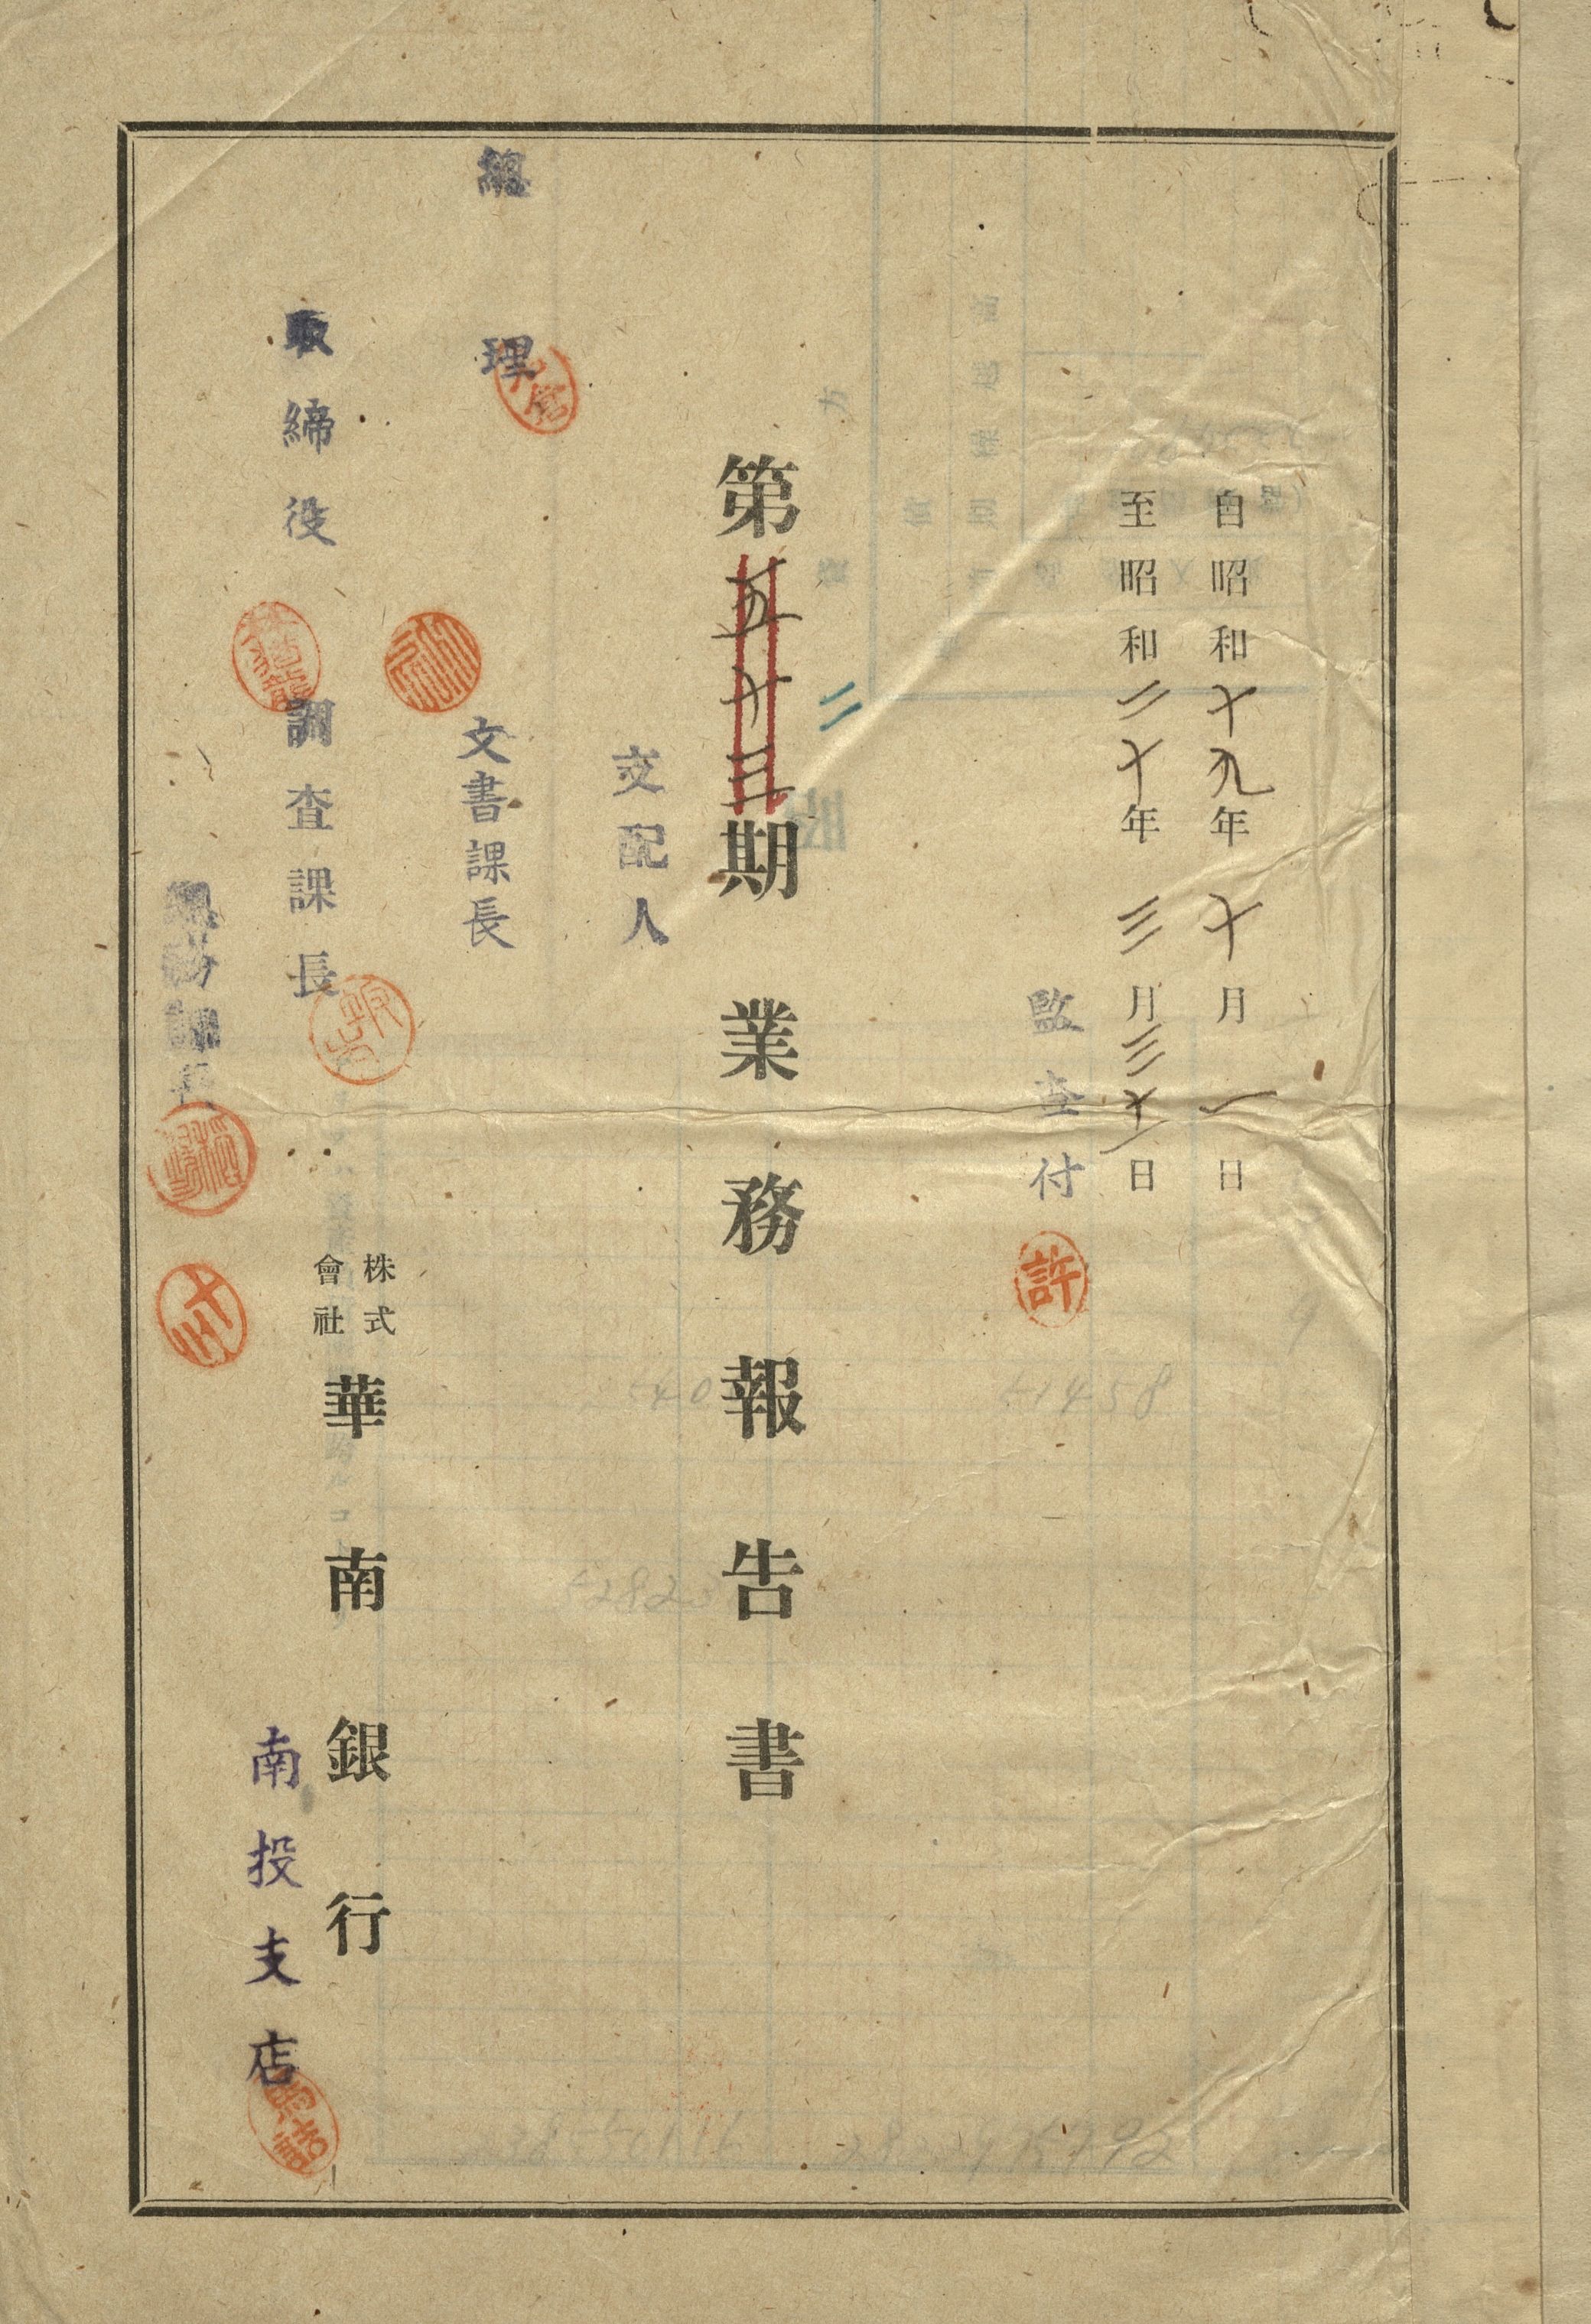 自昭和十九年十月一日
至昭和二十年三月三十一日
監査付
許
二
第五十三期業務報告書
支配人
總理
文書課長
取締役
調査課長
株式
會社
華南銀行
南投支店